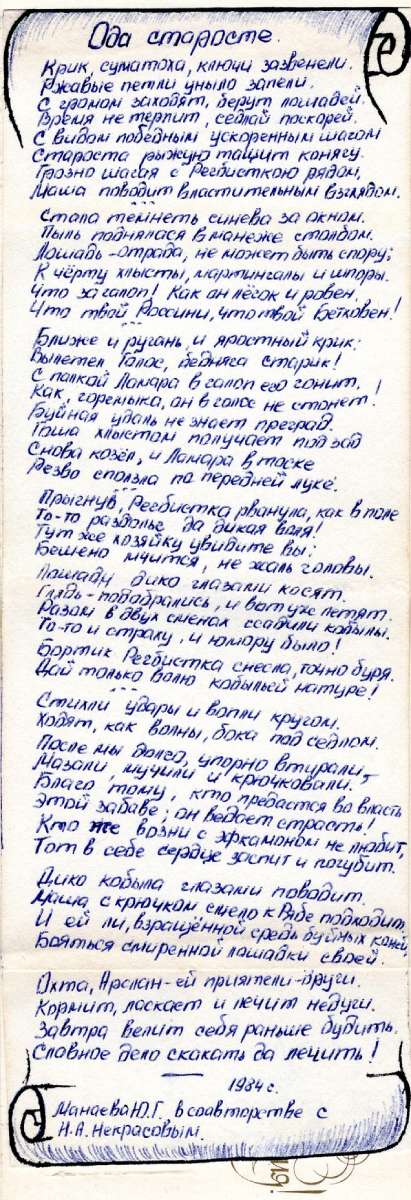 Ода старосте.
Крик, суматоха, ключи зазвенели.
Ржавые петли уныло запели.
С громом заходят, берут лошадей.
Время не терпит, седлай поскорей.
С видом победным ускоренным шагом
Староста рыжую тащит конягу.
Грозно шагая с Регбисткою рядом,
Маша поводит властительным взглядом.
Стала темнеть синева за окном.
Пыль поднялася в манеже столбом.
Лошадь-отрада, не может быть спору;
К чёрту хлысты, мартингалы и шпоры.
Что за галоп! Как он лёгок и ровен.
Что твой Россини, что твой Бетховен!
Ближе и ругань, и яростный крик:
Вылетел Голос, бедняга старик!
С палкой Ламара в галоп его гонит,
Как, горемыка, он в голос не стонет!
Буйная удаль не знает преград.
Гоша хлыстом получает под зад
Снова козёл, и Ламара в тоске
Резво сползла по передней луке.
Прыгнув, Регбистка рванула, как в поле
То-то раздолье да дикая воля!
Тут же хозяйку увидите вы:
Бешено мчится, не жаль головы.
Лошади дико глазами косят.
Глядь-подобрались, и вот уж летят.
Разом в двух сменах ссадили кобылы.
То-то и страху, и юмору было!
Бортик Регбистка снесла, точно буря.
Дай только волю кобыльей натуре!
Стихли удары и вопли кругом.
Ходят, как волны, бока под седлом.
После мы долго, упорно втирали,
Мазали, мучили и крючковали.
Благо тому, кто предастся во власть
Этой забаве; он ведает страсть!
Кто же возни с эфкамоном не любит,
Тот в себе сердце заспит и погубит.
Дико кобыла глазами поводит.
Маша с крючком смело к Рябе подходит,
И ей ли, взращённой средь буйных коней,
Бояться смиренной лошадки своей.
Охта, Арслан-ей приятели-други.
Кормит, ласкает и лечит недуги.
Завтра велит себя раньше будить.
Славное дело скакать да лечить!
1984г.
Манаева Ю.Г. в соавторстве с
Н.А. Некрасовым.